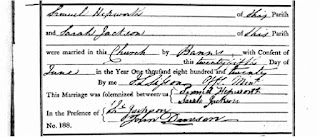 Samuel Hepworth of this Parish
and Sarah Jackson of this Parish
were married in this Church by Banns with Consent of
this twenty fifth Day of
June in the Year One thousand eight hundred and twenty
By me
This Marriage was solemnized between us Samuel Hepworth
Sarah Jackson
In the Presence of Thos Jackson
John Dawson
No. 188.